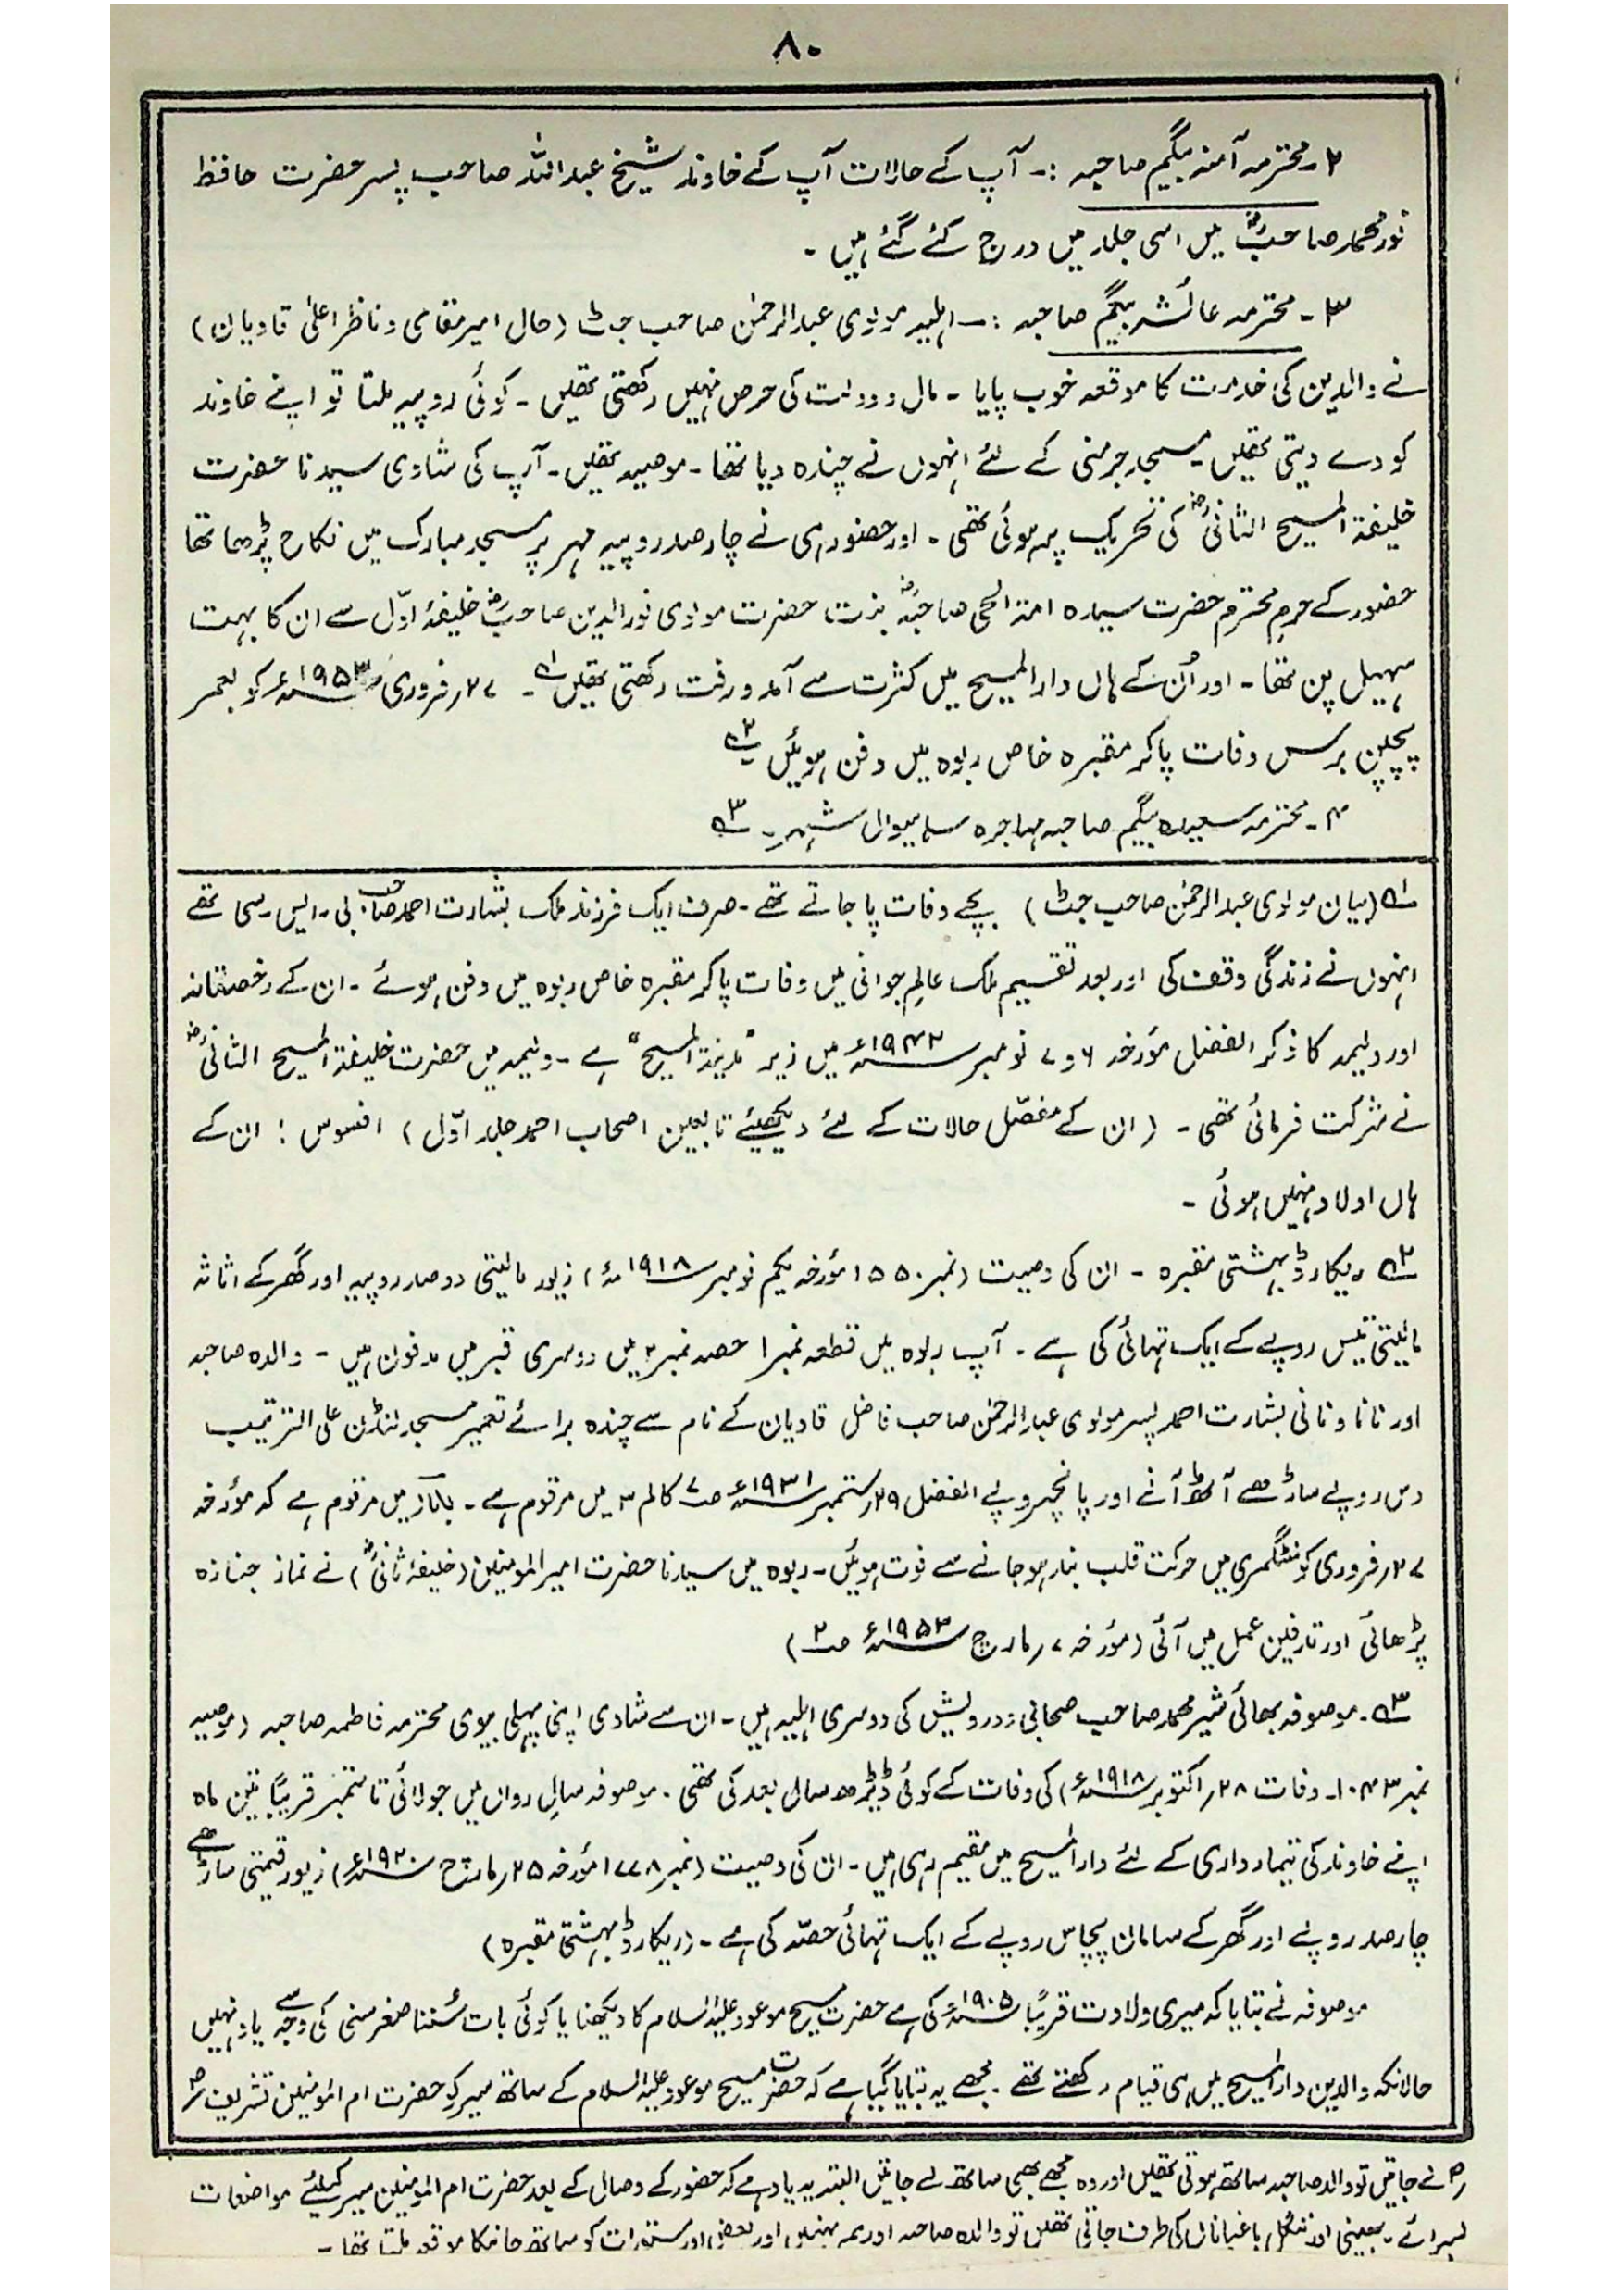 ۸۰
۲۔ محترمہ آمنہ بیگم صاحبہ :۔ آپ کے حالات آپ کے خاوند شیخ عبداللہ صاحب پسر حضرت حافظ
نور محمد صاحبؓ میں اسی جلد میں درج کئے گئے ہیں ۔
۳۔ محترمہ عائشہ بیگم صاحبہ :۔ اہلیہ مولوی عبدالرحمٰن صاحب جٹ (حال امیر مقامی و ناظر اعلیٰ قادیان)
نے والدین کی خدمت کا موقعہ خوب پایا ۔ مال و دولت کی حرص نہیں رکھتی تھیں ۔ کوئی روپیہ ملتا تو اپنے خاوند
کو دے دیتی تھیں۔ مسجد جرمنی کے لئے انہوں نے چندہ دیا تھا ۔ موصیہ تھیں ۔ آپ کی شادی سیدنا حضرت
خلیفۃ المسیح الثانیؓ کی تحریک پر ہوئی تھی ۔ اور حضور ہی نے چار صد روپیہ مہر پر مسجد مبارک میں نکاح پڑھا تھا
حضور کے حرمِ محترم حضرت سیدہ امۃ الحی صاحبہؓ بنت حضرت مولوی نورالدین صاحبؓ خلیفۂ اوّل سے ان کا بہت
سہیل پن تھا ۔ اور اُن کے ہاں دارالمسیح میں کثرت سے آمد و رفت رکھتی تھیں ؎۱ ۔ ۲۷ فروری ۱۹۵۳ء کو بعمر
پچپن برس وفات پا کر مقبرہ خاص ربوہ میں دفن ہوئیں ؎۲
۴۔ محترمہ سعیدہ بیگم صاحبہ مہاجرہ ساہیوال شہر۔ ؎۳
؎۱ (بیان مولوی عبدالرحمٰن صاحب جٹ) بچے وفات پا جاتے تھے ۔ صرف ایک فرزند ملک بشارت احمد صاحب بی۔ایس۔سی تھے
انہوں نے زندگی وقف کی اور بعد تقسیم ملک عالمِ جوانی میں وفات پا کر مقبرہ خاص ربوہ میں دفن ہوئے ۔ ان کے رخصتانہ
اور ولیمہ کا ذکر الفضل مؤرخہ ۶ و ۷ نومبر ۱۹۴۲ء میں زیر "مدینۃ المسیح" ہے ۔ ولیمہ میں حضرت خلیفۃ المسیح الثانیؓ
نے شرکت فرمائی تھی ۔ (ان کے مفصّل حالات کے لئے دیکھئے تابعین اصحاب احمد جلد اوّل) افسوس ! ان کے
ہاں اولاد نہیں ہوئی ۔
؎۲ ریکارڈ بہشتی مقبرہ ۔ ان کی وصیت (نمبر ۱۵۵۰ مؤرخہ یکم نومبر ۱۹۱۸ء) زیور مالیتی دو صد روپیہ اور گھر کے اثاثہ
مالیتی تیس روپے کے ایک تہائی کی ہے ۔ آپ ربوہ میں قطعہ نمبر ۱ حصہ نمبر ۲ میں دوسری قبر میں مدفون ہیں ۔ والدہ صاحبہ
اور نانا و نانی بشارت احمد پسر مولوی عبدالرحمٰن صاحب فاضل قادیان کے نام سے چندہ برائے تعمیر مسجد لنڈن علی الترتیب
دس روپے ساڑھے آٹھ آنے اور پانچ روپے الفضل ۲۹ ستمبر ۱۹۳۱ء صـ۷ کالم ۳ میں مرقوم ہے ۔ میں مرقوم ہے کہ مؤرخہ
۲۷ فروری کو منٹگمری میں حرکت قلب بند ہو جانے سے فوت ہوئیں ۔ ربوہ میں سیدنا حضرت امیرالمومنین (خلیفۂ ثانیؓ) نے نماز جنازہ
پڑھائی اور تدفین عمل میں آئی (مؤرخہ ۷ مارچ ۱۹۵۳ء صـ۲)
؎۳ ۔ موصوفہ بھائی شیر محمد صاحب صحابی و درویش کی دوسری اہلیہ ہیں ۔ ان سے شادی اپنی پہلی بیوی محترمہ فاطمہ صاحبہ (موصیہ
نمبر ۱۰۴۳۔ وفات ۲۸ اکتوبر ۱۹۱۸ء) کی وفات کے کوئی ڈیڑھ سال بعد کی تھی ۔ موصوفہ سالِ رواں میں جولائی تا ستمبر قریباً تین ماہ
اپنے خاوند کی تیمارداری کے لئے دارالمسیح میں مقیم رہی ہیں ۔ ان کی وصیت (نمبر ۱۷۷۸ مؤرخہ ۲۵ مارچ ۱۹۲۰ء) زیور قیمتی ساڑھے
چار صد روپے اور گھر کے سامان پچاس روپے کے ایک تہائی حصّہ کی ہے ۔ (ریکارڈ بہشتی مقبرہ)
موصوفہ نے بتایا کہ میری ولادت قریباً ۱۹۰۵ء کی ہے حضرت مسیح موعود علیہ السلام کا دیکھنا یا کوئی بات سُننا صغر سنی کی وجہ سے یاد نہیں
حالانکہ والدین دارالمسیح میں ہی قیام رکھتے تھے ۔ مجھے یہ بتایا گیا ہے کہ حضرت مسیح موعود علیہ السلام کے ساتھ سیر کو حضرت ام المومنین تشریف
لے جاتیں تو والدہ صاحبہ ساتھ ہوتی تھیں اور وہ مجھے بھی ساتھ لے جاتیں البتہ یہ یاد ہے کہ حضور کے وصال کے بعد حضرت ام المومنین سیر کیلئے مواضعات
بسرائے ۔ بھینی اور ننگل باغباناں کی طرف جاتی تھیں تو والدہ صاحبہ اور ہمہ بہنیں اور بعض اور مستورات کو ساتھ جانیکا موقعہ ملتا تھا ۔